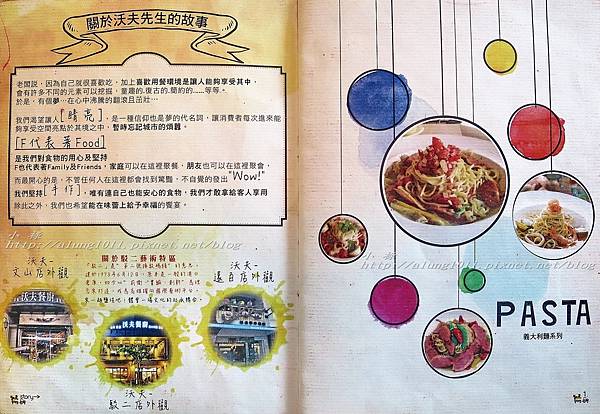 關於沃夫先生的故事
老闆說,因為自己就很喜歡吃,加上喜歡用餐環境是讓人能夠享受其中,
會有許多不同的元素可以挖掘,童趣的.復古的.簡約的......等等。
於是,有個夢...在心中沸騰的翻滾且茁壯...
我們渴望讓人「晴亮」,是一種信仰也是夢的代名詞,讓消費者每次進來能
夠享受空間亮點於其境之中,暫時忘記城市的煩囂。
「F代表著Food」
是我們對食物的用心及堅持
F也代表著Family及Friends,家庭可以在這裡聚餐,朋友也可以在這裡聚會,
而最開心的是,不管任何人在這裡都會找到驚豔,不自覺的發出"Wow!"
我們堅持「手作」,唯有連自己也能安心的食物,我們才敢拿給客人享用
除此之外,我們也希望能在味蕾上給予幸福的饗宴。
小祿
http://alung1011.pixnet.net/blog
關於駁二藝術特區
沃夫-
文山店外觀
沃夫-
遠百店外觀
沃夫餐廚
沃夫餐廚
沃夫-
駁二店外觀
story
小祿
http://alung1011.pixnet.net/blog
PASTA
義大利麵系列
1